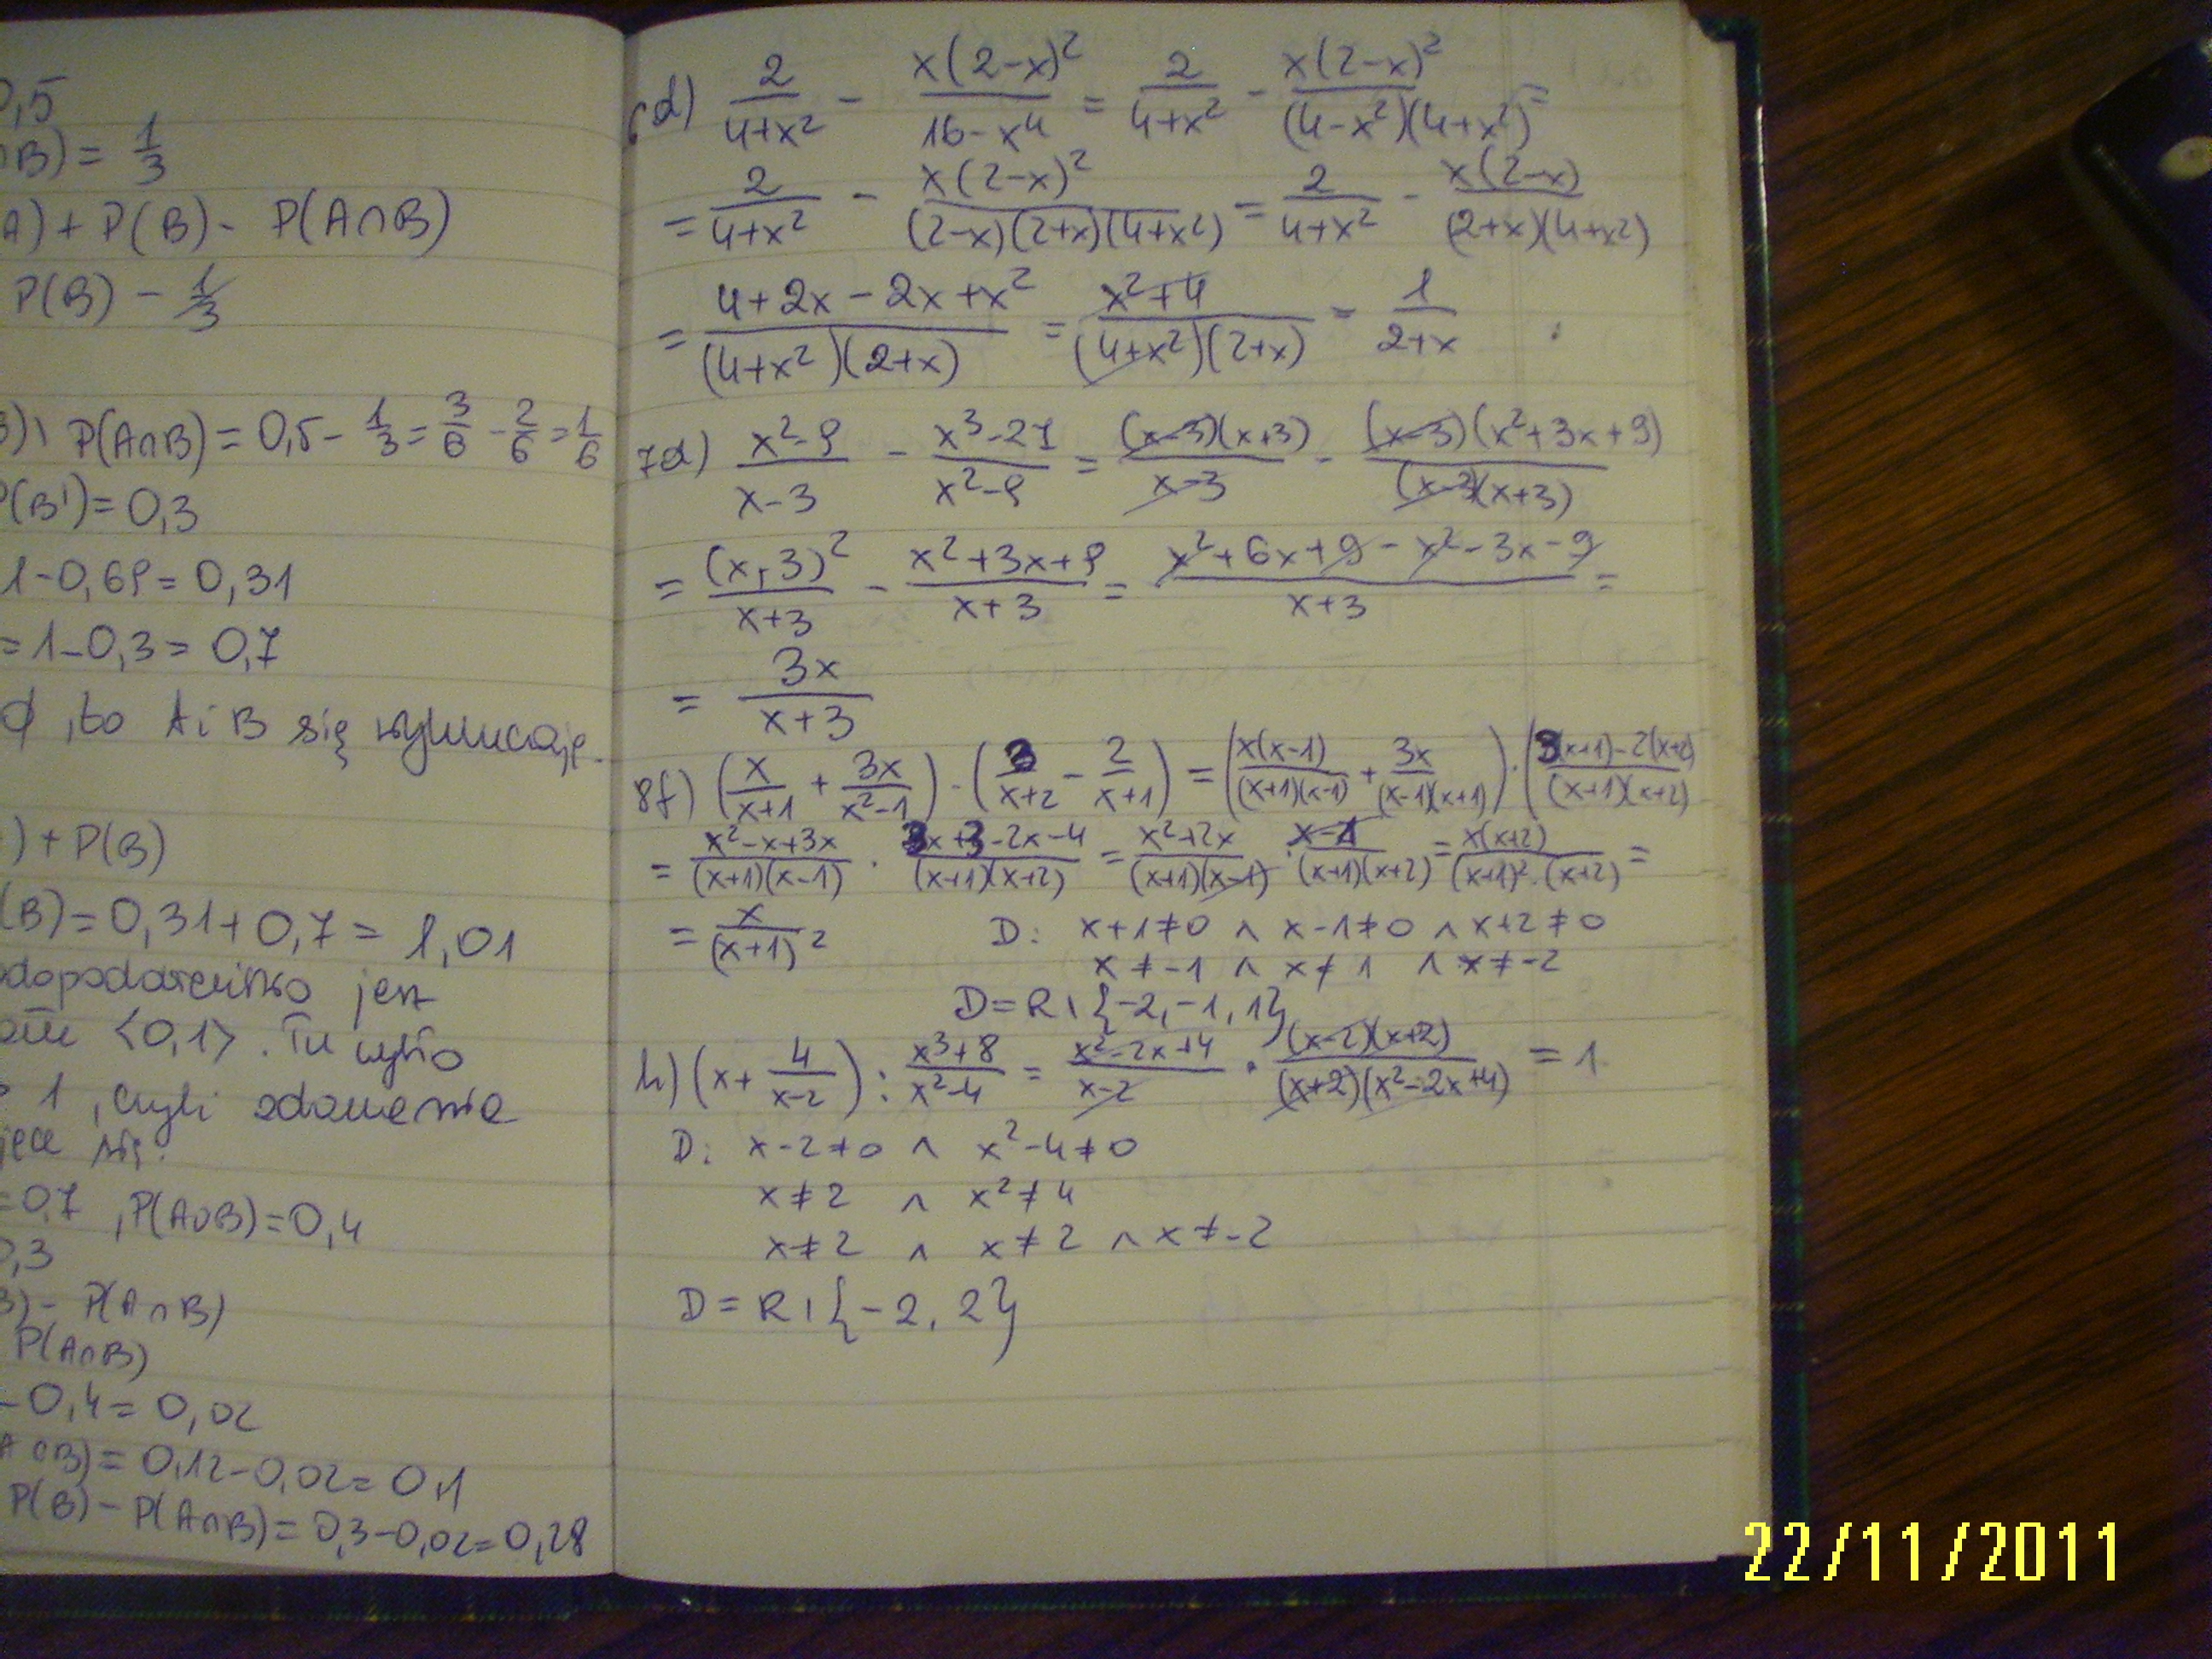 0,5
∩B) = 1/3
A) + P(B) - P(A∩B)
P(B) - 1/3
B)\ P(A∩B) = 0,5 - 1/3 = 3/6 - 2/6 = 1/6
P(B') = 0,3
1-0,69 = 0,31
= 1-0,3 = 0,7
to A i B się wykluczają.
) + P(B)
(B) = 0,31 + 0,7 = 1,01
jest
<0,1>. Tu
1, czyli zdarzenia
się.
=0,7 , P(A∪B) = 0,4
0,3
B) - P(A∩B)
P(A∩B)
- 0,4 = 0,02
A∩B) = 0,12 - 0,02 = 0,1
P(B) - P(A∩B) = 0,3 - 0,02 = 0,28
6d) 2/(4+x²) - x(2-x)²/(16-x⁴) = 2/(4+x²) - x(2-x)²/((4-x²)(4+x²)) =
= 2/(4+x²) - x(2-x)²/((2-x)(2+x)(4+x²)) = 2/(4+x²) - x(2-x)/((2+x)(4+x²))
= (4+2x-2x+x²)/((4+x²)(2+x)) = (x²+4)/((4+x²)(2+x)) = 1/(2+x)
7d) (x²-9)/(x-3) - (x³-27)/(x²-9) = (x-3)(x+3)/(x-3) - (x-3)(x²+3x+9)/((x-3)(x+3))
= (x+3)²/(x+3) - (x²+3x+9)/(x+3) = (x²+6x+9-x²-3x-9)/(x+3) =
= 3x/(x+3)
8f) (x/(x+1) + 3x/(x²-1)) · (3/(x+2) - 2/(x+1)) = (x(x-1)/((x+1)(x-1)) + 3x/((x-1)(x+1))) · (3(x+1)-2(x+2))/((x+1)(x+2))
= (x²-x+3x)/((x+1)(x-1)) · (3x+3-2x-4)/((x+1)(x+2)) = (x²+2x)/((x+1)(x-1)) · (x-1)/((x+1)(x+2)) = x(x+2)/((x+1)²·(x+2)) =
= x/(x+1)² D: x+1≠0 ∧ x-1≠0 ∧ x+2≠0
x≠-1 ∧ x≠1 ∧ x≠-2
D=R\{-2,-1,1}
h) (x + 4/(x-2)) : (x³+8)/(x²-4) = (x²-2x+4)/(x-2) · (x-2)(x+2)/((x+2)(x²-2x+4)) = 1
D: x-2≠0 ∧ x²-4≠0
x≠2 ∧ x²≠4
x≠2 ∧ x≠2 ∧ x≠-2
D=R\{-2,2}
22/11/2011